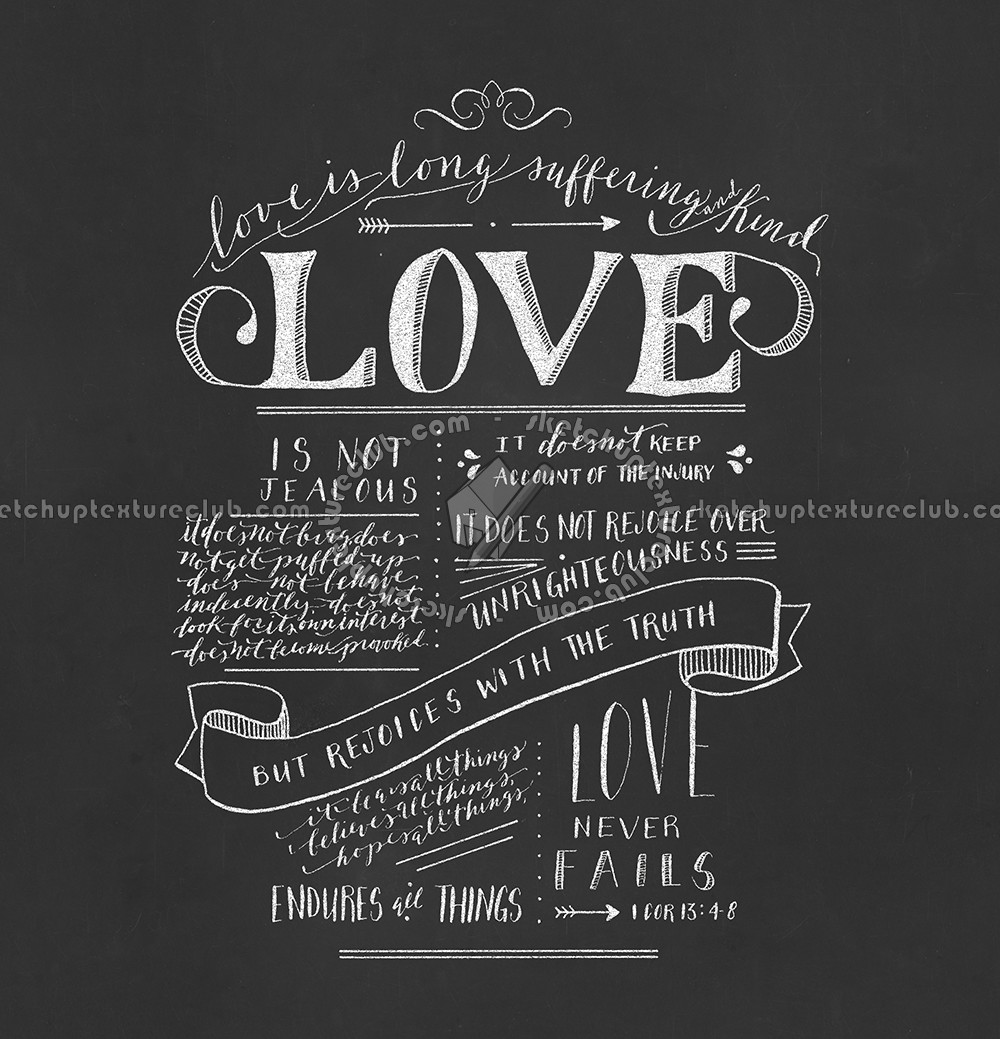 love is long suffering and kind
LOVE
IS NOT
JEALOUS
it does not brag, does
not get puffed up
does not behave
indecently, does not
look for its own interest
does not become provoked.
IT does not KEEP
ACCOUNT OF THE INJURY
IT DOES NOT REJOICE OVER
UNRIGHTEOUSNESS
BUT REJOICES WITH THE TRUTH
it bears all things
believes all things,
hopes all things,
ENDURES all THINGS
LOVE
NEVER
FAILS
1 COR 13:4-8
sketchuptextureclub.com